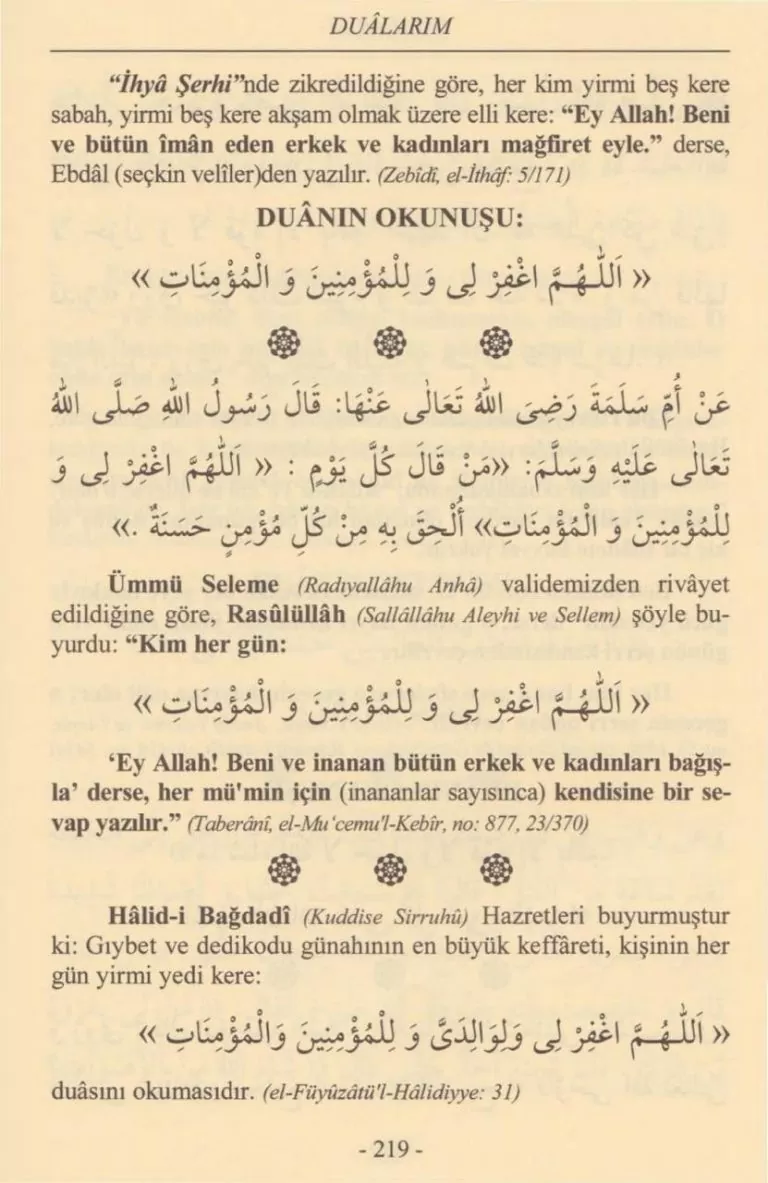 DUÂLARIM
“İhyâ Şerhi”nde zikredildiğine göre, her kim yirmi beş kere
sabah, yirmi beş kere akşam olmak üzere elli kere: “Ey Allah! Beni
ve bütün îmân eden erkek ve kadınları mağfiret eyle.” derse,
Ebdâl (seçkin velîler)den yazılır. (Zebîdî, el-İthâf: 5/171)
DUÂNIN OKUNUŞU:
« اَللّٰهُمَّ اغْفِرْ لِى وَ لِلْمُؤْمِنِينَ وَ الْمُؤْمِنَاتِ »
عَنْ أُمِّ سَلَمَةَ رَضِىَ اللهُ تَعَالٰى عَنْهَا: قَالَ رَسُولُ اللهِ صَلَّى اللهُ
تَعَالٰى عَلَيْهِ وَسَلَّمَ: «مَنْ قَالَ كُلَّ يَوْمٍ : « اَللّٰهُمَّ اغْفِرْ لِى وَ
لِلْمُؤْمِنِينَ وَ الْمُؤْمِنَاتِ» أُلْحِقَ بِهِ مِنْ كُلِّ مُؤْمِنٍ حَسَنَةٌ .»
Ümmü Seleme (Radıyallâhu Anhâ) validemizden rivâyet
edildiğine göre, Rasûlüllâh (Sallâllâhu Aleyhi ve Sellem) şöyle bu-
yurdu: “Kim her gün:
« اَللّٰهُمَّ اغْفِرْ لِى وَ لِلْمُؤْمِنِينَ وَ الْمُؤْمِنَاتِ »
‘Ey Allah! Beni ve inanan bütün erkek ve kadınları bağış-
la’ derse, her mü'min için (inananlar sayısınca) kendisine bir se-
vap yazılır.” (Taberânî, el-Mu‘cemu'l-Kebîr, no: 877, 23/370)
Hâlid-i Bağdadî (Kuddise Sirruhû) Hazretleri buyurmuştur
ki: Gıybet ve dedikodu günahının en büyük keffâreti, kişinin her
gün yirmi yedi kere:
« اَللّٰهُمَّ اغْفِرْ لِى وَلِوَالِدَىَّ وَ لِلْمُؤْمِنِينَ وَالْمُؤْمِنَاتِ »
duâsını okumasıdır. (el-Füyûzâtü'l-Hâlidiyye: 31)
- 219 -